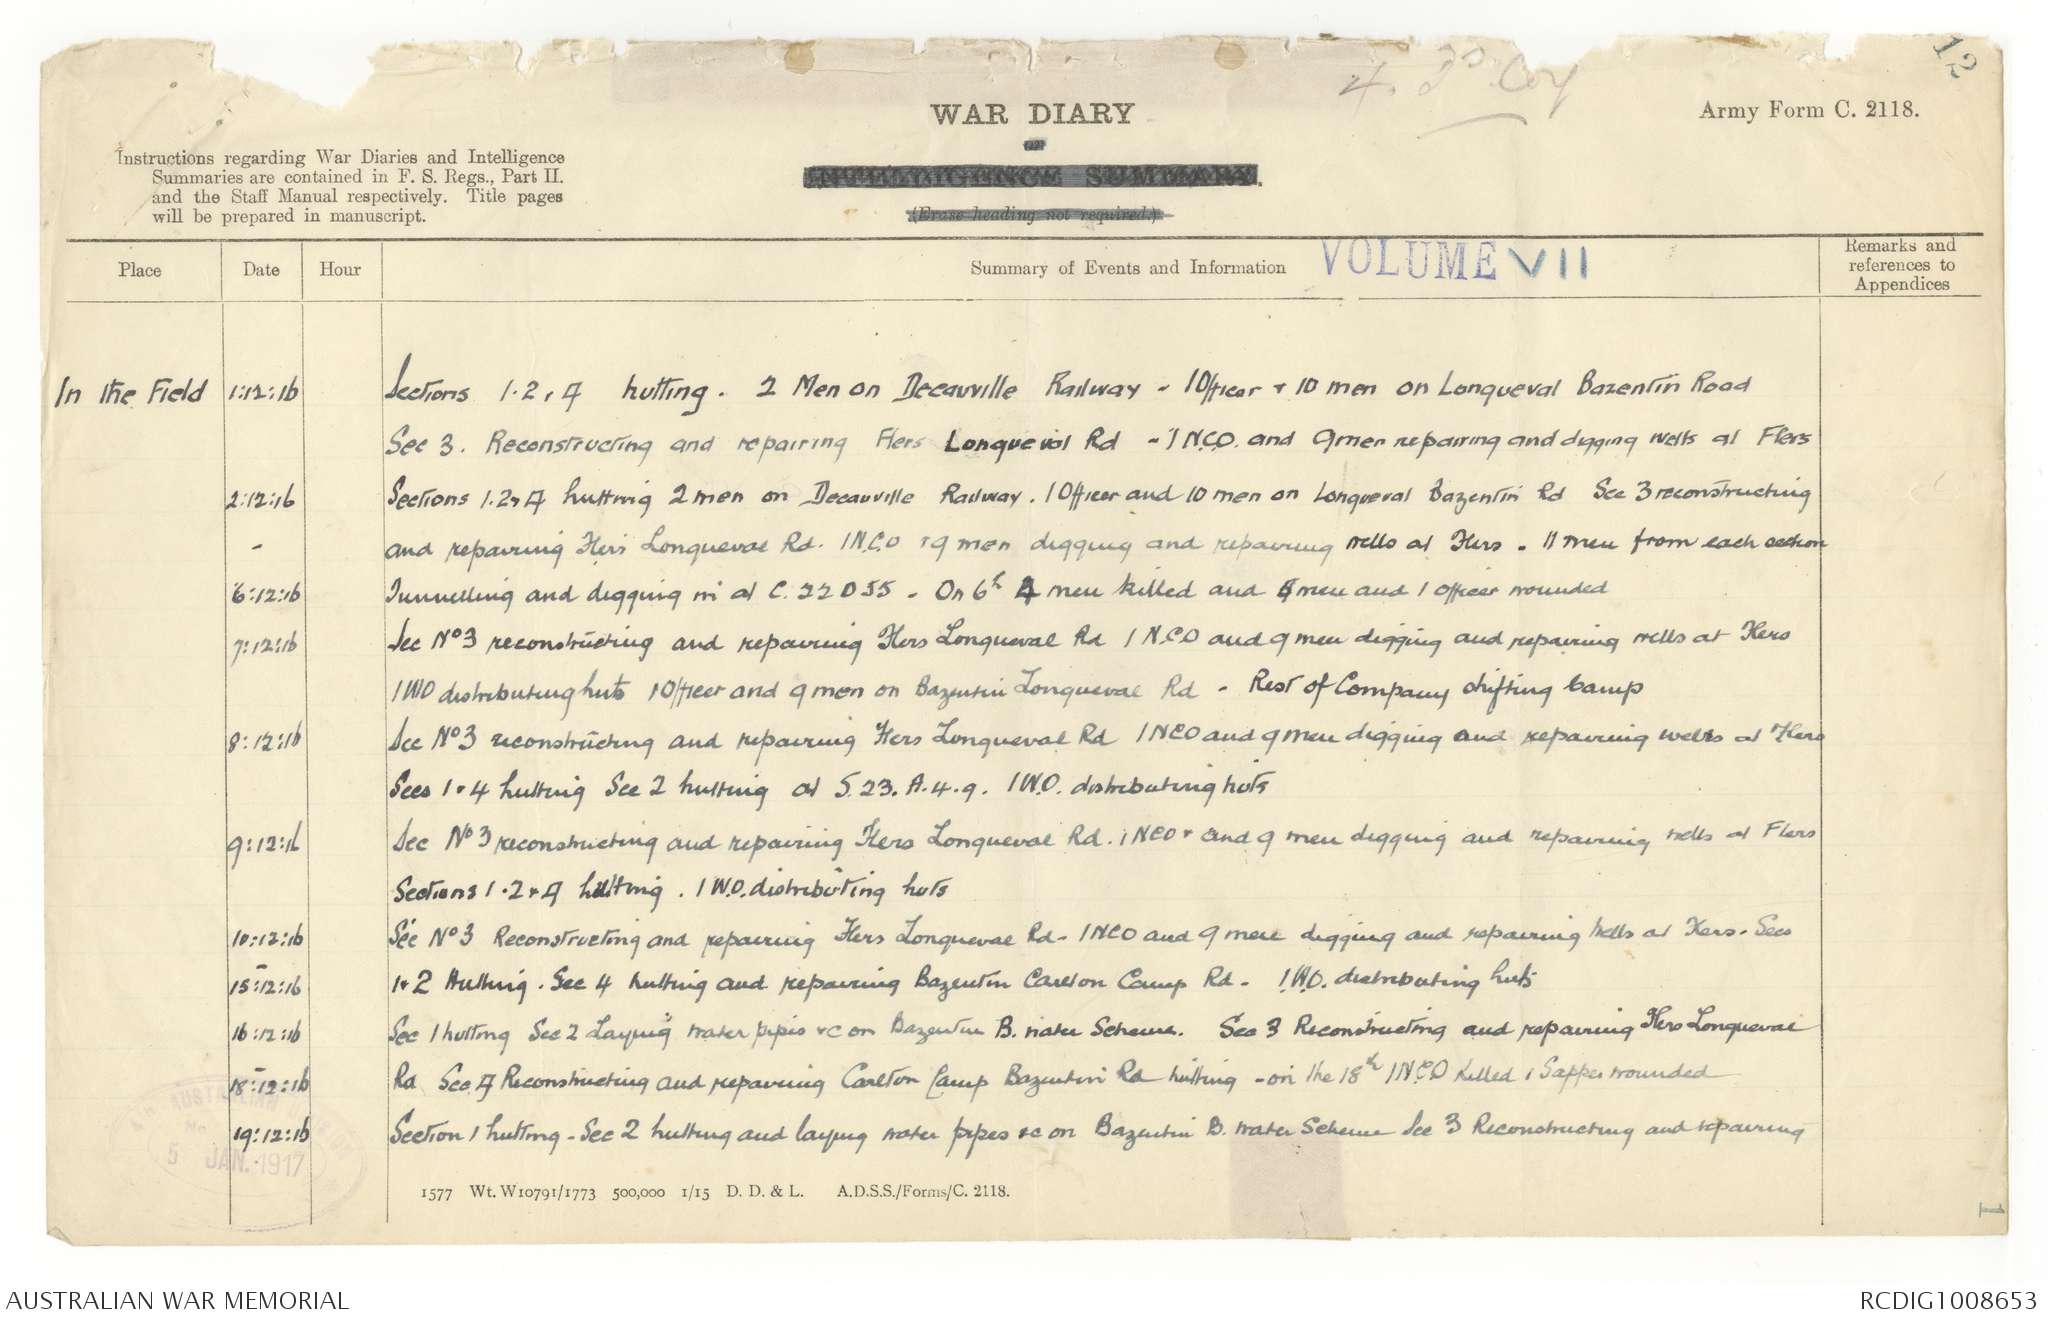 12
4. Fd. Coy
WAR DIARY
or
INTELLIGENCE SUMMARY.
(Erase heading not required.)
Army Form C. 2118.
Instructions regarding War Diaries and Intelligence
Summaries are contained in F. S. Regs., Part II.
and the Staff Manual respectively. Title pages
will be prepared in manuscript.
Place Date Hour Summary of Events and Information VOLUME VII Remarks and references to Appendices
In the Field 1:12:16 Sections 1.2 , 4 hutting. 2 Men on Decauville Railway - 1 Officer + 10 men on Longueval Bazentin Road
Sec 3. Reconstructing and repairing Flers Longueval Rd - 1 N.C.O. and 9 men repairing and digging wells at Flers
2:12:16 Sections 1.2 + 4 hutting 2 men on Decauville Railway. 1 Officer and 10 men on Longueval Bazentin Rd Sec 3 reconstructing
- and repairing Flers Longueval Rd. 1 N.C.O + 9 men digging and repairing wells at Flers - 11 men from each section
6:12:16 Tunnelling and digging in at C. 22 D 55 - On 6th 4 men killed and men and 1 officer wounded
7:12:16 Sec No 3 reconstructing and repairing Flers Longueval Rd 1 N.C.O and 9 men digging and repairing wells at Flers
1 WO distributing huts 1 Officer and 9 men on Bazentin Longueval Rd - Rest of Company shifting Camp
8:12:16 Sec No 3 reconstructing and repairing Flers Longueval Rd 1 NCO and 9 men digging and repairing wells at Flers
Secs 1 + 4 hutting Sec 2 hutting at S. 23. A. 4. 9. 1 W.O. distributing huts
9:12:16 Sec No 3 reconstructing and repairing Flers Longueval Rd. 1 NCO + and 9 men digging and repairing wells at Flers
Sections 1.2 + 4 hutting. 1 W.O. distributing huts
10:12:16 Sec No 3 Reconstructing and repairing Flers Longueval Rd - 1 NCO and 9 men digging and repairing wells at Flers - Secs
-
15:12:16 1 + 2 Hutting. Sec 4 hutting and repairing Bazentin Carlton Camp Rd - 1 W.O. distributing huts
16:12:16 Sec 1 hutting Sec 2 Laying water pipes +c on Bazentin B. water Scheme. Sec 3 Reconstructing and repairing Flers Longueval
-
18:12:16 Rd Sec 4 Reconstructing and repairing Carlton Camp Bazentin Rd hutting - on the 18th 1 N.C.O killed 1 Sapper wounded
19:12:16 Section 1 hutting - Sec 2 hutting and laying water pipes +c on Bazentin B. water Scheme Sec 3 Reconstructing and repairing
AUSTRALIAN
5 JAN. 1917
1577 Wt. W10791/1773 500,000 1/15 D. D. & L. A.D.S.S./Forms/C. 2118.
1
AUSTRALIAN WAR MEMORIAL RCDIG1008653